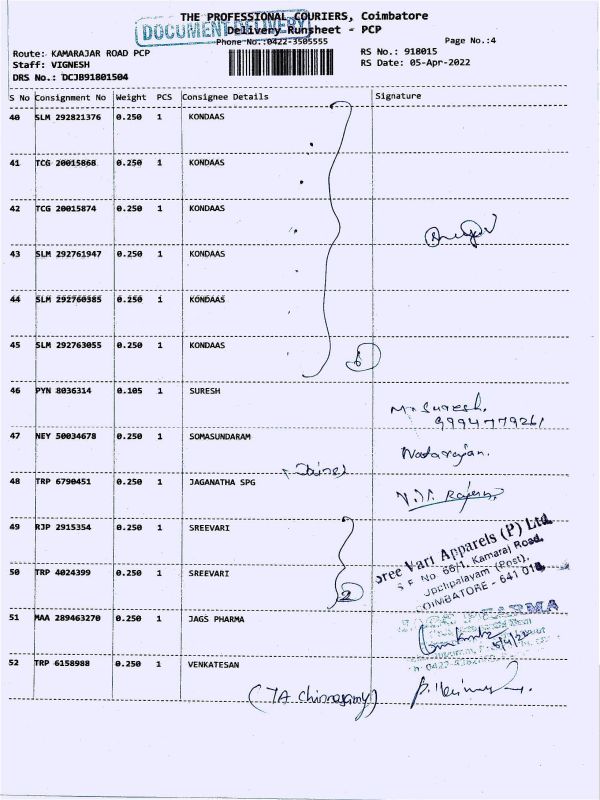 THE PROFESSIONAL COURIERS, Coimbatore
DOCUMENT DELIVERY
Delivery Runsheet - PCP
Phone No.:0422-3505555
Page No.:4
Route: KAMARAJAR ROAD PCP
RS No.: 918015
Staff: VIGNESH
RS Date: 05-Apr-2022
DRS No.: DCJB91801504
S No Consignment No Weight PCS Consignee Details Signature
40 SLM 292821376 0.250 1 KONDAAS
41 TCG 20015868 0.250 1 KONDAAS
42 TCG 20015874 0.250 1 KONDAAS
43 SLM 292761947 0.250 1 KONDAAS
44 SLM 292760585 0.250 1 KONDAAS
45 SLM 292763055 0.250 1 KONDAAS
6
46 PYN 8036314 0.105 1 SURESH
Suresh.
9994779261
47 NEY 50034678 0.250 1 SOMASUNDARAM
Natarajan.
48 TRP 6790451 0.250 1 JAGANATHA SPG
49 RJP 2915354 0.250 1 SREEVARI
Sree Vari Apparels (P) Ltd.
S F No 66/1, Kamaraj Road,
50 TRP 4024399 0.250 1 SREEVARI
2
(Post),
COIMBATORE - 641 015
51 MAA 289463270 0.250 1 JAGS PHARMA
JAGS PHARMA
52 TRP 6158988 0.250 1 VENKATESAN